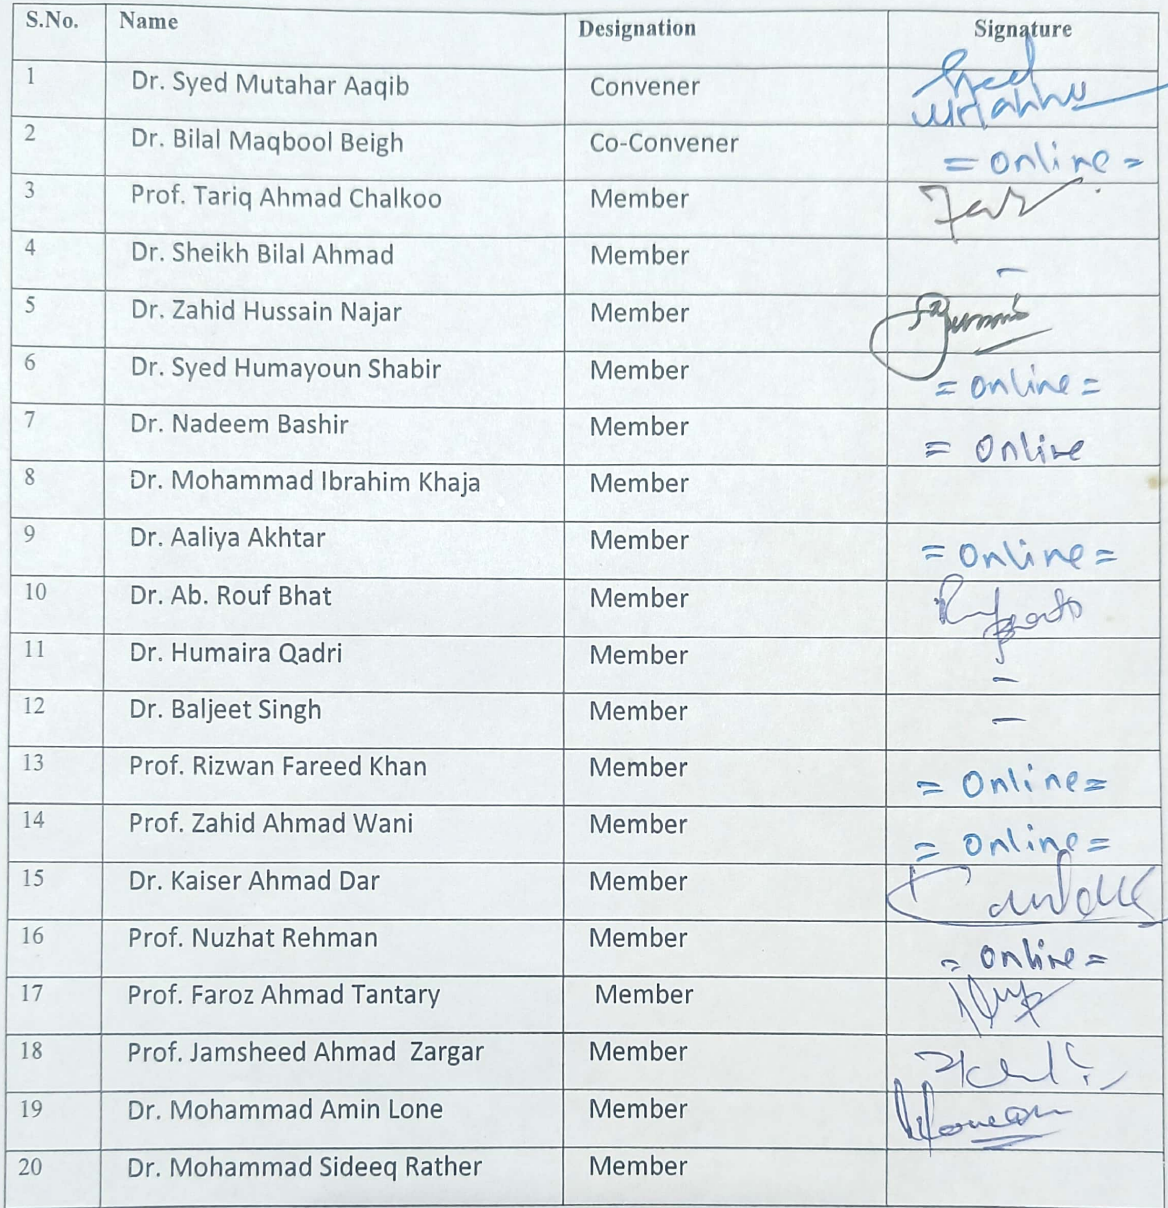 S.No. Name Designation Signature
1 Dr. Syed Mutahar Aaqib Convener Syed
Mutahhar
2 Dr. Bilal Maqbool Beigh Co-Convener = online =
3 Prof. Tariq Ahmad Chalkoo Member
4 Dr. Sheikh Bilal Ahmad Member –
5 Dr. Zahid Hussain Najar Member
6 Dr. Syed Humayoun Shabir Member = online =
7 Dr. Nadeem Bashir Member = Online
8 Dr. Mohammad Ibrahim Khaja Member
9 Dr. Aaliya Akhtar Member = Online =
10 Dr. Ab. Rouf Bhat Member
11 Dr. Humaira Qadri Member –
12 Dr. Baljeet Singh Member –
13 Prof. Rizwan Fareed Khan Member = Online =
14 Prof. Zahid Ahmad Wani Member = Online =
15 Dr. Kaiser Ahmad Dar Member
16 Prof. Nuzhat Rehman Member = Online =
17 Prof. Faroz Ahmad Tantary Member
18 Prof. Jamsheed Ahmad Zargar Member
19 Dr. Mohammad Amin Lone Member
20 Dr. Mohammad Sideeq Rather Member